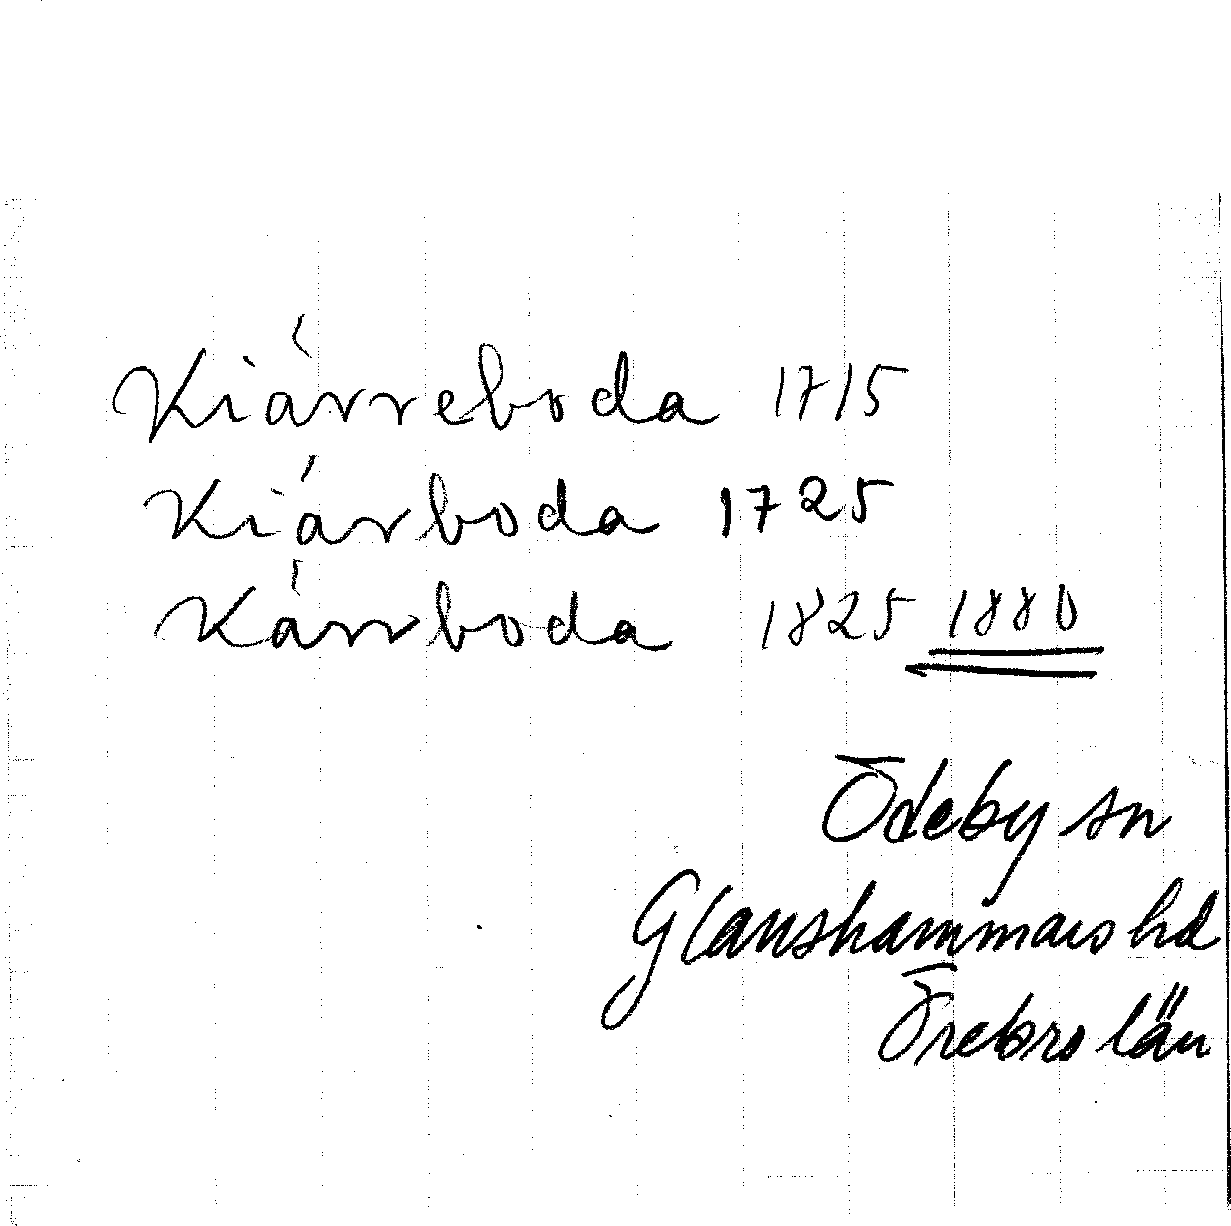 Kiärreboda 1715
Kiärboda 1725
Kärrboda 1825 1880
Ödeby sn
Glanshammars hd
Örebro län